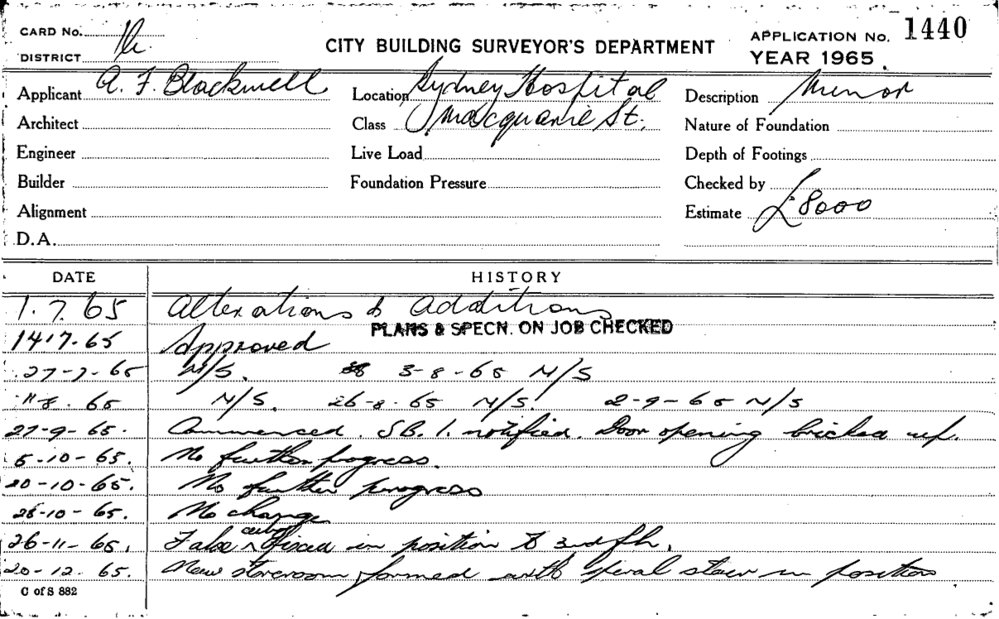 CARD No.
APPLICATION No. 1440
CITY BUILDING SURVEYOR'S DEPARTMENT
DISTRICT
YEAR 1965.
Applicant A. F. Blackwell
Location Sydney Hospital
Description Minor
Architect
Class Macquarie St.
Nature of Foundation
Engineer
Live Load
Depth of Footings
Builder
Foundation Pressure
Checked by
Alignment
Estimate £8000
D.A.
DATE HISTORY
1.7.65 Alterations & Additions
PLANS & SPECN. ON JOB CHECKED
14.7.65 Approved
27-7-65 N/S. 3-8-65 N/S
11-8-65 N/S. 26-8-65 N/S 2-9-65 N/S
27-9-65. Commenced. S.B.I. notified. Door opening bricked up.
5-10-65. No further progress.
20-10-65. No further progress
28-10-65. No change
26-11-65. False ceiling fixed in position to 3rd flr.
20-12-65. New storeroom formed with spiral stair in position
C of S 882